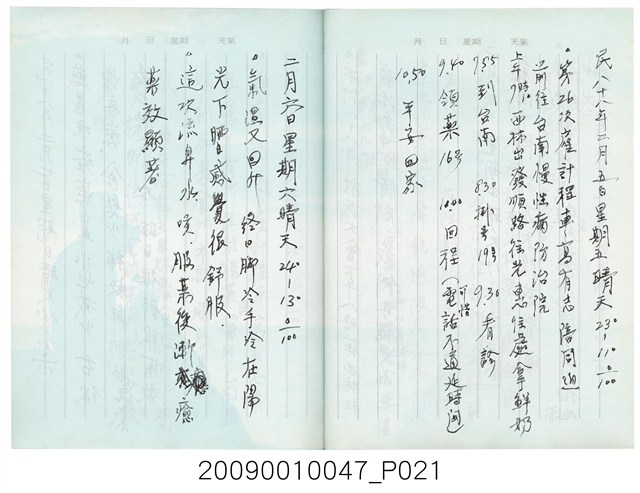 月 日 星期 天氣
民八十八年二月五日星期五晴天 23°-11° 0/100
。第26次雇計程車高有志陪同逈
前往台南慢性病防治院
上午7時西林出發順路往光惠住處拿鮮奶
7.55到台南 8.30掛号19号 9.30看診
9.40領藥16号 10.00回程(電話不通延時間)
可惜
10.50平安回家
月 日 星期 天氣
二月六日星期六晴天 24°-13° 0/100
。氣溫又回升 終日腳冷手冷在陽
光下晒感覺很舒服.
。這次流鼻水.咳.服藥後漸 癒
藥效顯著
20090010047_P021